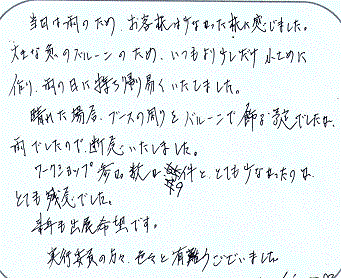 当日は雨のため、お客様は少なかった様に感じました。
大きな魚のバルーンのため、いつもより少しだけ小さめに
作り、雨の日に持ち帰り易くいたしました。
晴れた場合、ブースの周りをバルーンで飾る予定でしたが、
雨でしたので、断念いたしました。
ワークショップ参加数は 9件と、とても少なかったのは
とても残念でした。
来年も出展希望です。
実行委員の方々、色々と有難うございました